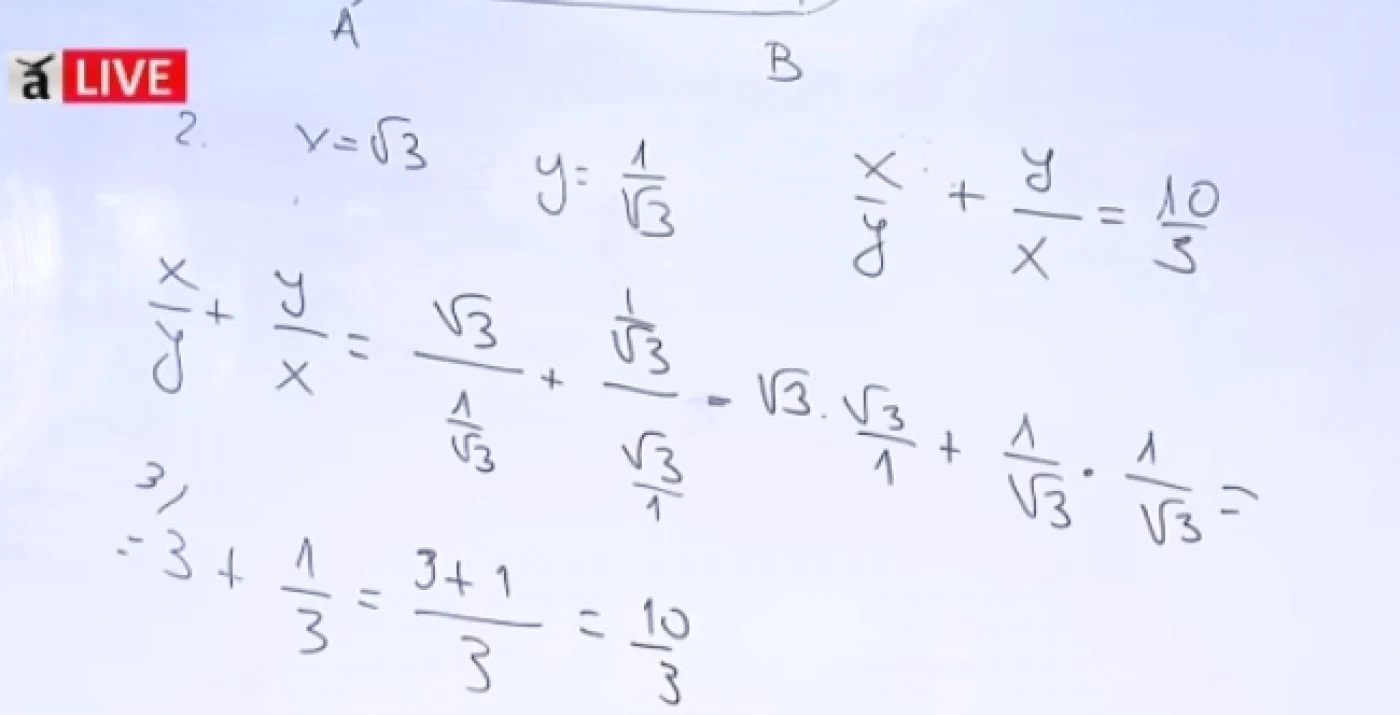 A
B
ă LIVE
2. x=√3 y= 1/√3 x/y + y/x = 10/3
x/y + y/x = √3/(1/√3) + (1/√3)/(√3/1) = √3 . √3/1 + 1/√3 · 1/√3 =
3/
= 3 + 1/3 = 3+1/3 = 10/3